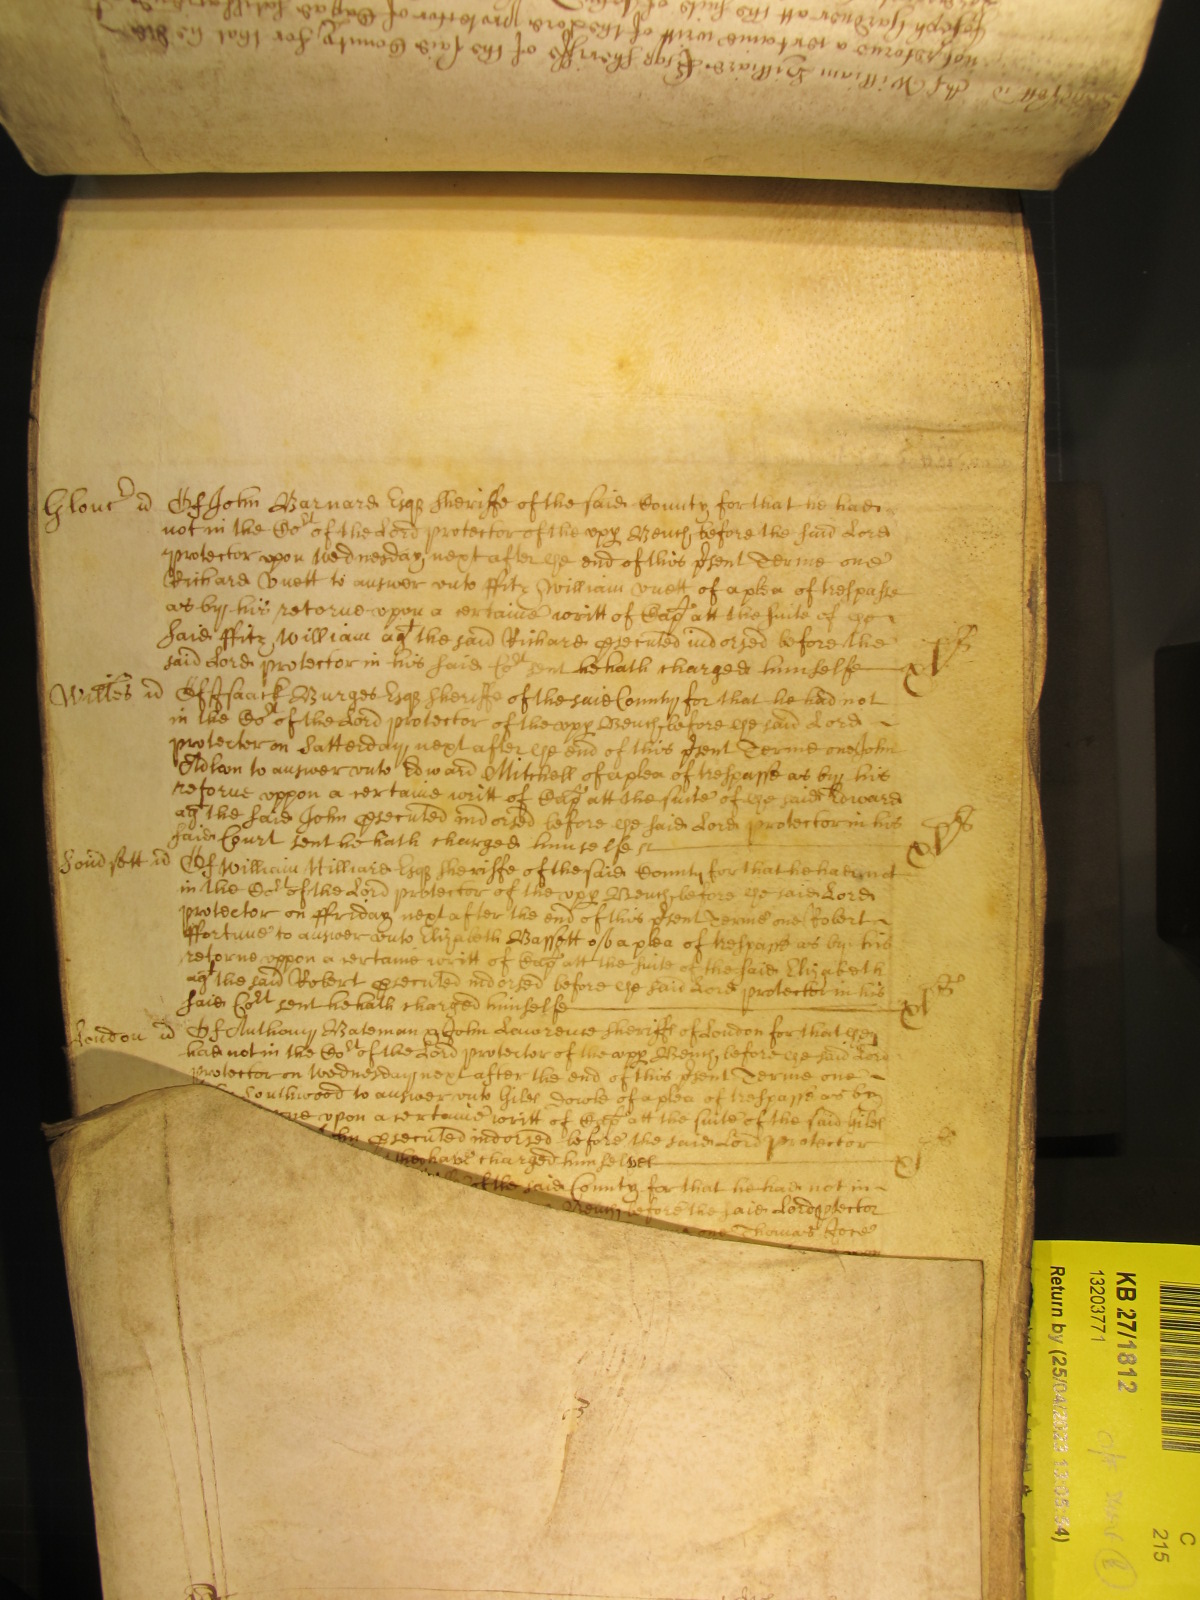 Joseph Gardner att the suite of
not retorne a certaine writt of the Lord protector of Cap
of William Hilliard Esqr Sheriffe of the said County for that he did
Glouc ss Of John Barnard Esqr Sheriffe of the said County for that he had
not in the Cort of the Lord protector of the uppr Bench before the said Lord
protector upon Wednesday next after ye end of this psent Terme one
Richard Unett to answer unto ffitz William Unett of a plea of trespasse
as by his retorne upon a certaine writt of Cap att the suite of ye
said ffitz William agt the said Richard executed indorsed before the
said Lord protector in his said Cort sent he hath charged himselfe xls
Wiltes ss Of Isaack Burges Esqr Sheriffe of the said County for that he had not
in the Cort of the Lord protector of the uppr Bench before ye said Lord
protector on Satterday next after ye end of this psent Terme one John
to answer unto Edward Mitchell of a plea of trespasse as by his
retorne uppon a certaine writt of Cap att the suite of ye said Edward
agt the said John executed indorsed before ye said Lord protector in his
said Court sent he hath charged himselfe xls
ss Of William Hilliard Esqr Sheriffe of the said County for that he had not
in the Cort of the Lord protector of the uppr Bench before ye said Lord
protector on ffriday next after the end of this psent Terme one Robert
ffortune to answer unto Elizabeth Bassett of a plea of trespasse as by his
retorne uppon a certaine writt of Cap att the suite of the said Elizabeth
agt the said Robert executed indorsed before ye said Lord protector in his
said Cort sent he hath charged himselfe xls
London ss Of Anthony Bateman & John Lawrence Sheriffs of London for that they
had not in the Cort of the Lord protector of the uppr Bench before ye said Lord
protector on Wednesday next after the end of this psent Terme one
Southwood to answer unto Giles Dowle of a plea of trespasse as by
upon a certaine writt of Cap att the suite of the said Giles
executed indorsed before the said Lord protector
they have charged himselves xls
of the said County for that he had not in
Bench before the said Lord ptector
one Thomas
KB 27/1812
13203771
Return by (25/04/2023 13:05:54)
C
215